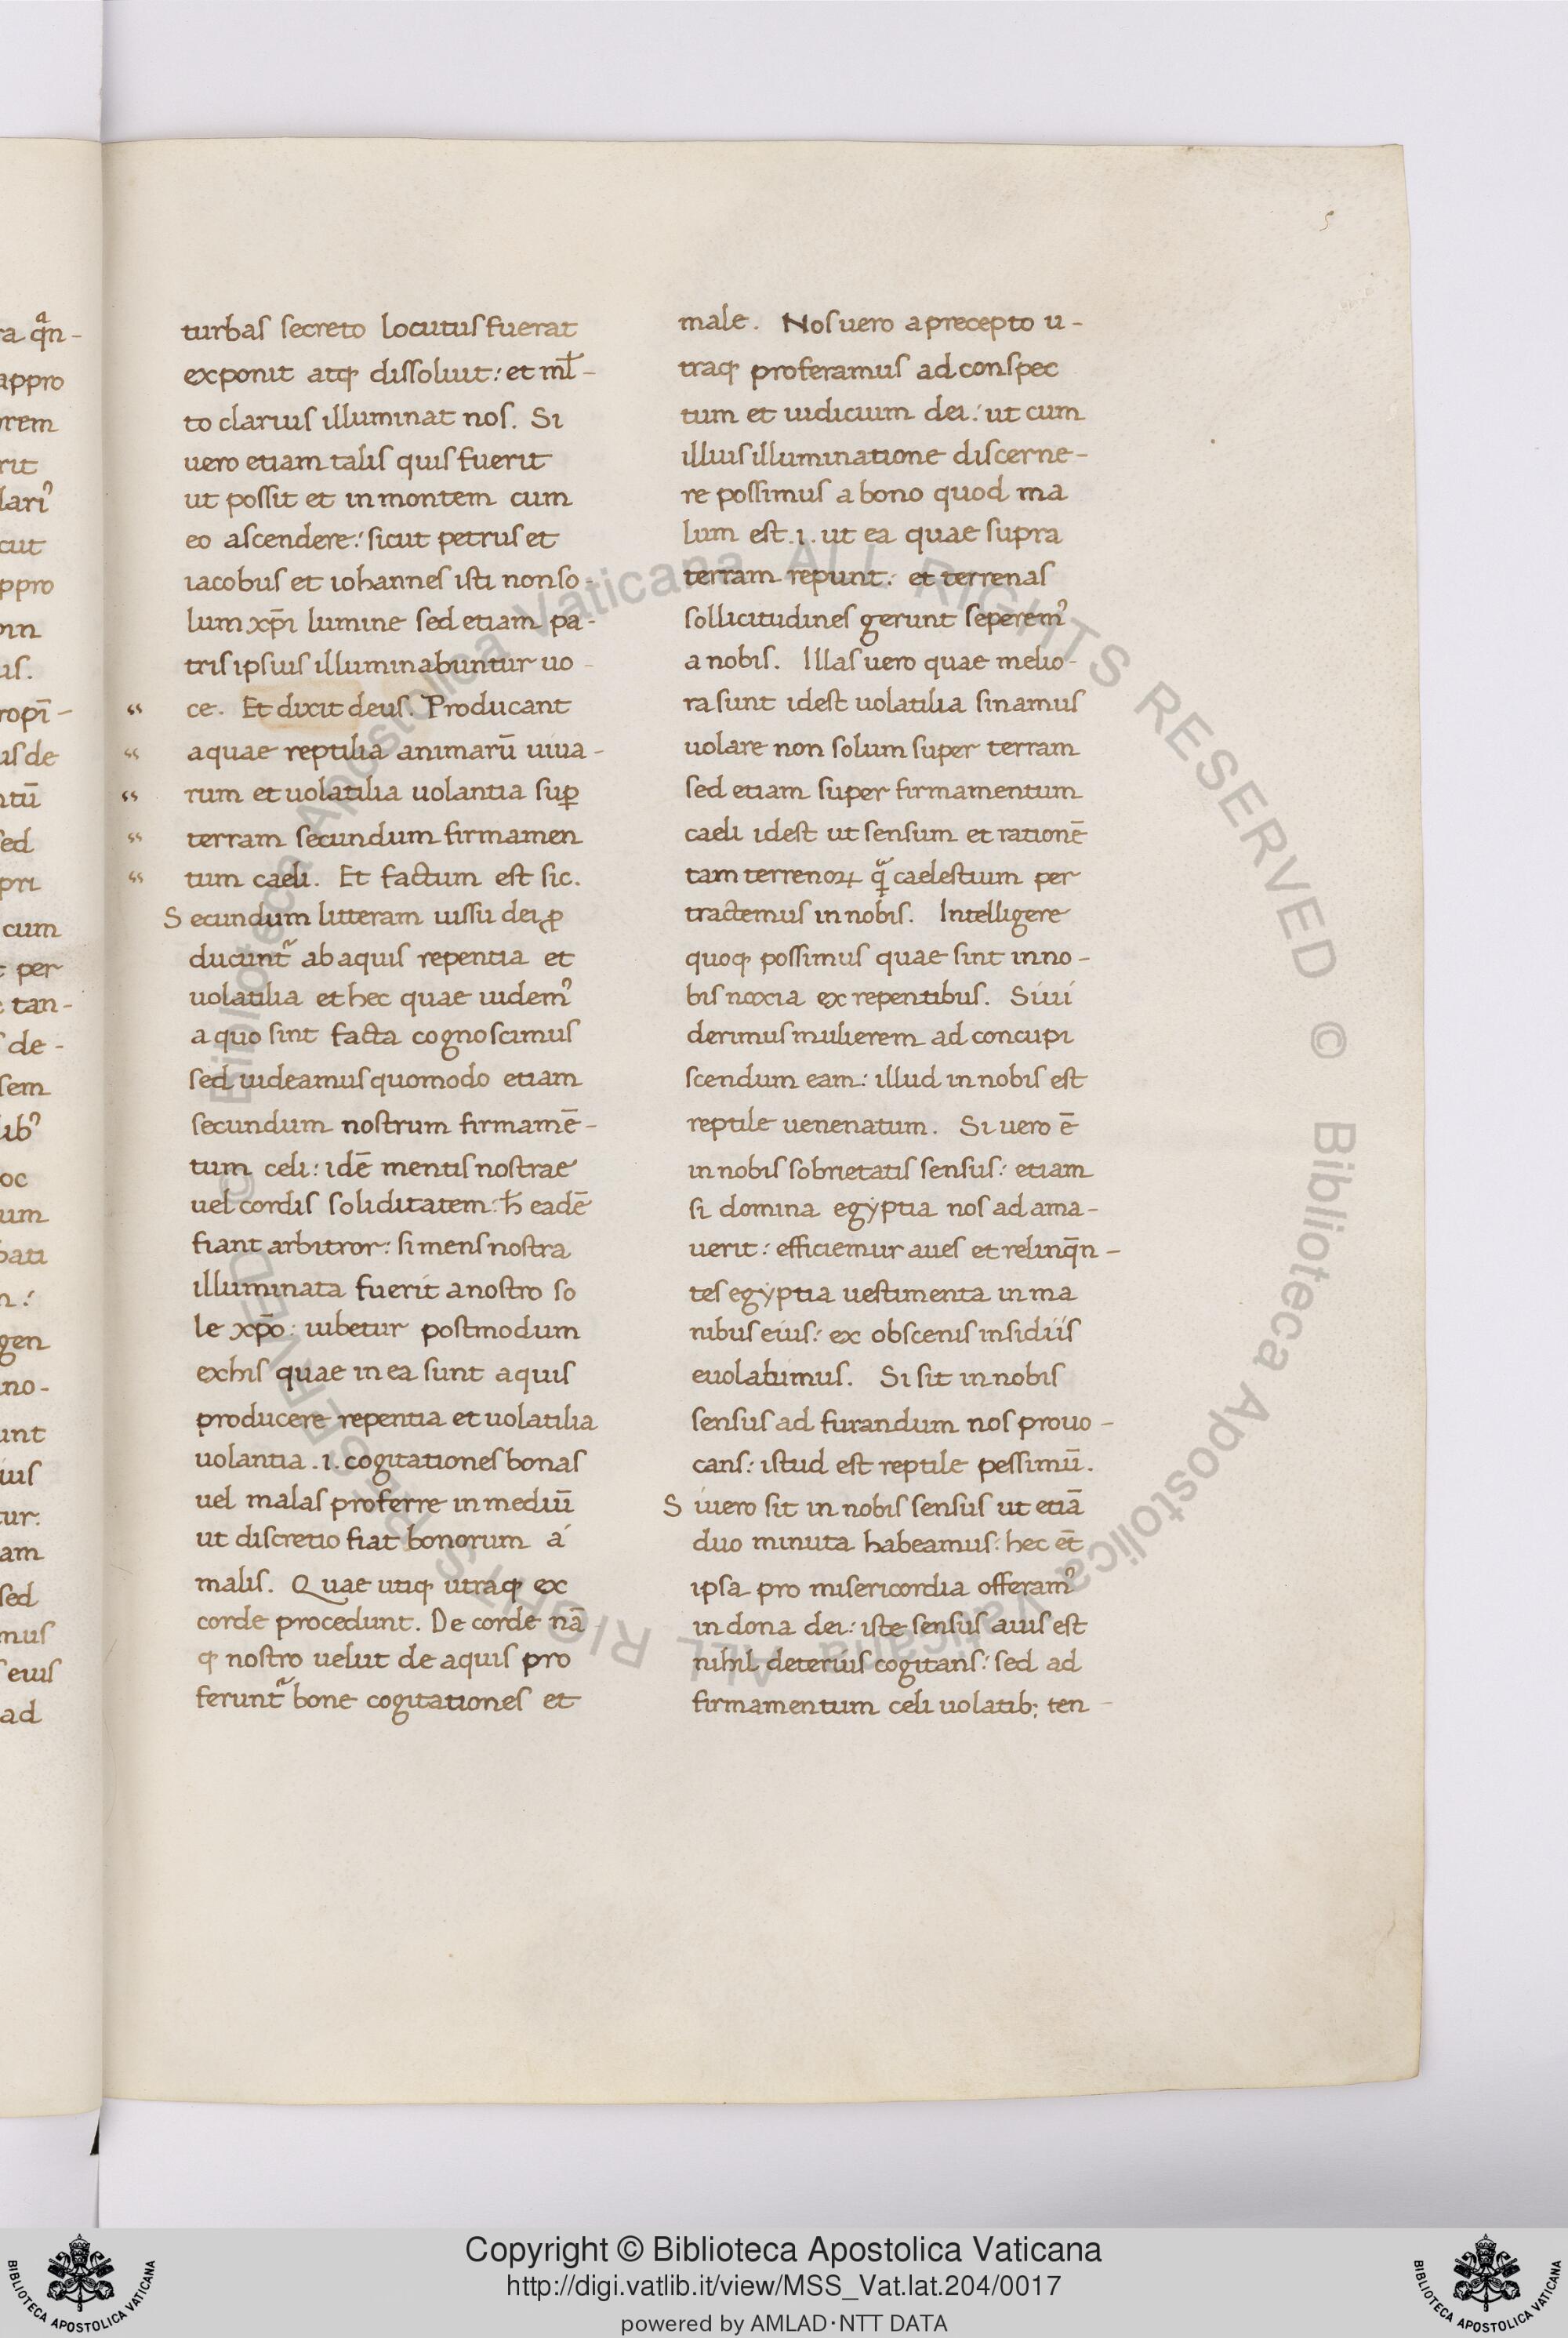 ra qᵃn-
appro
orem
rit
lariꝰ
cut
ppro
oin
us.
ropi̅-
us de
ntu̅
sed
pri
cum
t per
e tan-
s de-
sem
libꝰ
oc
um
bati
n:
gen
no-
unt
ius
tur:
am
sed
mus
s eius
ad
turbas secreto locutus fuerat
exponit atq; dissoluit: et ml̅-
to clarius illuminat nos. Si
uero etiam talis quis fuerit
ut possit et in montem cum
eo ascendere: sicut petrus et
iacobus et iohannes isti non so-
lum xp̅i lumine sed etiam pa-
tris ipsius illuminabuntur uo-
ce. Et dixit deus. Producant
aquae reptilia animaru̅ uiua-
rum et uolatilia uolantia suꝑ
terram secundum firmamen
tum caeli. Et factum est sic.
Secundum litteram iussu dei ꝓ
ducunt᷑ ab aquis repentia et
uolatilia et hec quae uidemꝰ
a quo sint facta cognoscimus
sed uideamus quomodo etiam
secundum nostrum firmame̅-
tum celi: ide̅ mentis nostrae
uel cordis soliditatem: h̅ eade̅
fiant arbitror: si mens nostra
illuminata fuerit a nostro so
le xp̅o: iubetur postmodum
ex his quae in ea sunt aquis
producere repentia et uolatilia
uolantia .i. cogitationes bonas
uel malas proferre in mediu̅
ut discretio fiat bonorum á
malis. Quae utiq; utraq; ex
corde procedunt. De corde na̅
q; nostro uelut de aquis pro
ferunt᷑ bone cogitationes et
male. Nos uero a precepto u-
traq; proferamus ad conspec
tum et iudicium dei: ut cum
illius illuminatione discerne-
re possimus a bono quod ma
lum est .i. ut ea quae supra
terram repunt: et terrenas
sollicitudines gerunt seperemꝰ
a nobis. Illas uero quae melio-
ra sunt idest uolatilia sinamus
uolare non solum super terram
sed etiam super firmamentum
caeli idest ut sensum et ratione̅
tam terrenoꝝ qᷓ caelestium per
tractemus in nobis. Intelligere
quoq; possimus quae sint in no-
bis noxia ex repentibus. Si ui
derimus mulierem ad concupi
scendum eam: illud in nobis est
reptile uenenatum. Si uero e̅
in nobis sobrietatis sensus: etiam
si domina egyptia nos adama-
uerit: efficiemur aues et relinq̅n-
tes egyptia uestimenta in ma
nibus eius: ex obscenis insidiis
euolabimus. Si sit in nobis
sensus ad furandum nos prouo-
cans: istud est reptile pessimu̅.
Si uero sit in nobis sensus ut etia̅
duo minuta habeamus: hec et̅
ipsa pro misericordia offeramꝰ
in dona dei: iste sensus auis est
nihil deterius cogitans: sed ad
firmamentum celi uolatib; ten-
5
© Biblioteca Apostolica Vaticana ALL RIGHTS RESERVED © Biblioteca Apostolica Vaticana ALL RIGHTS RESERVED
Copyright © Biblioteca Apostolica Vaticana
http://digi.vatlib.it/view/MSS_Vat.lat.204/0017
powered by AMLAD·NTT DATA
BIBLIOTECA APOSTOLICA VATICANA
BIBLIOTECA APOSTOLICA VATICANA